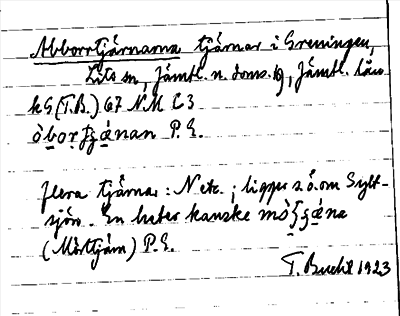 Abborrtjärnarna tjärnar i Greningen,
Lits sn, Jämtl. n. doms. , Jämtl. län
kG (T.B.) 67 N.M C3
P.E.
flera tjärnar: N etc.; ligger s.ö. om Sylt-
sjön. En heter kanske
(Mörttjärn) P.E.
T. Bucht 1923